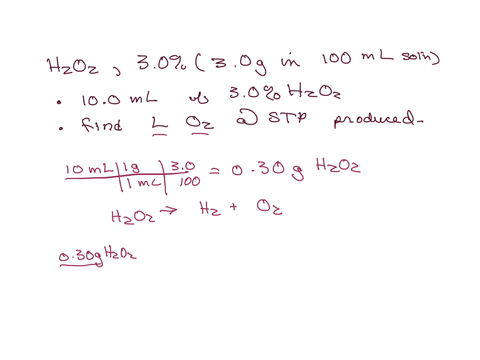 H2O2, 3.0% (3.0g in 100 mL soln)
• 10.0 mL of 3.0% H2O2
• find L O2 @ STP produced
10 mL | 1g | 3.0 = 0.30g H2O2
| 1 mL | 100
H2O2 → H2 + O2
0.30g H2O2